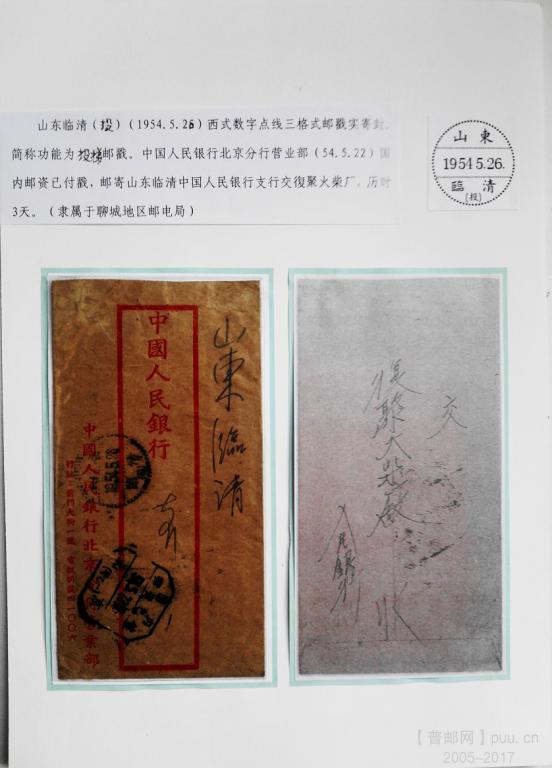 山东临清（投）（1954.5.26）西式数字点线三格式邮戳实寄封。
简称功能为投递邮戳。中国人民银行北京分行营业部（54.5.22）国
内邮资已付戳，邮寄山东临清中国人民银行支行交復聚火柴厂，历时
3天。（隶属于聊城地区邮电局）
山東
1954.5.26.
臨清
（投）
山東臨清
中國人民銀行
中國人民銀行北京
業部
交
復聚火柴廠
收
人民銀行
【普邮网】puu.cn
2005-2017